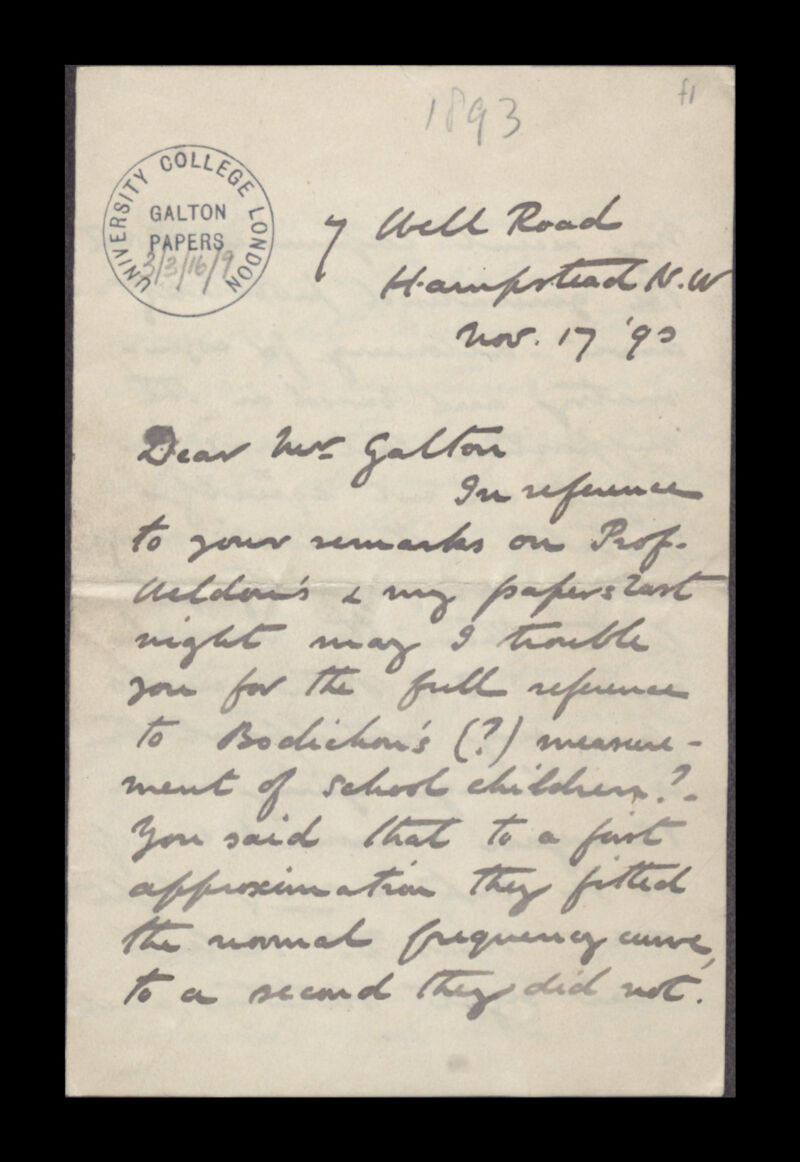 1893
f1
UNIVERSITY COLLEGE LONDON
GALTON
PAPERS
3/3/16/9
7 Well Road
Hampstead N.W
Nov. 17 '93
Dear Mr Galton
In reference
to your remarks on Prof.
Weldon's & my papers last
night may I trouble
you for the full reference
to Bodichon's (?) measure-
ment of school children?-
You said that to a first
approximation they fitted
the normal frequency curve,
to a second they did not.